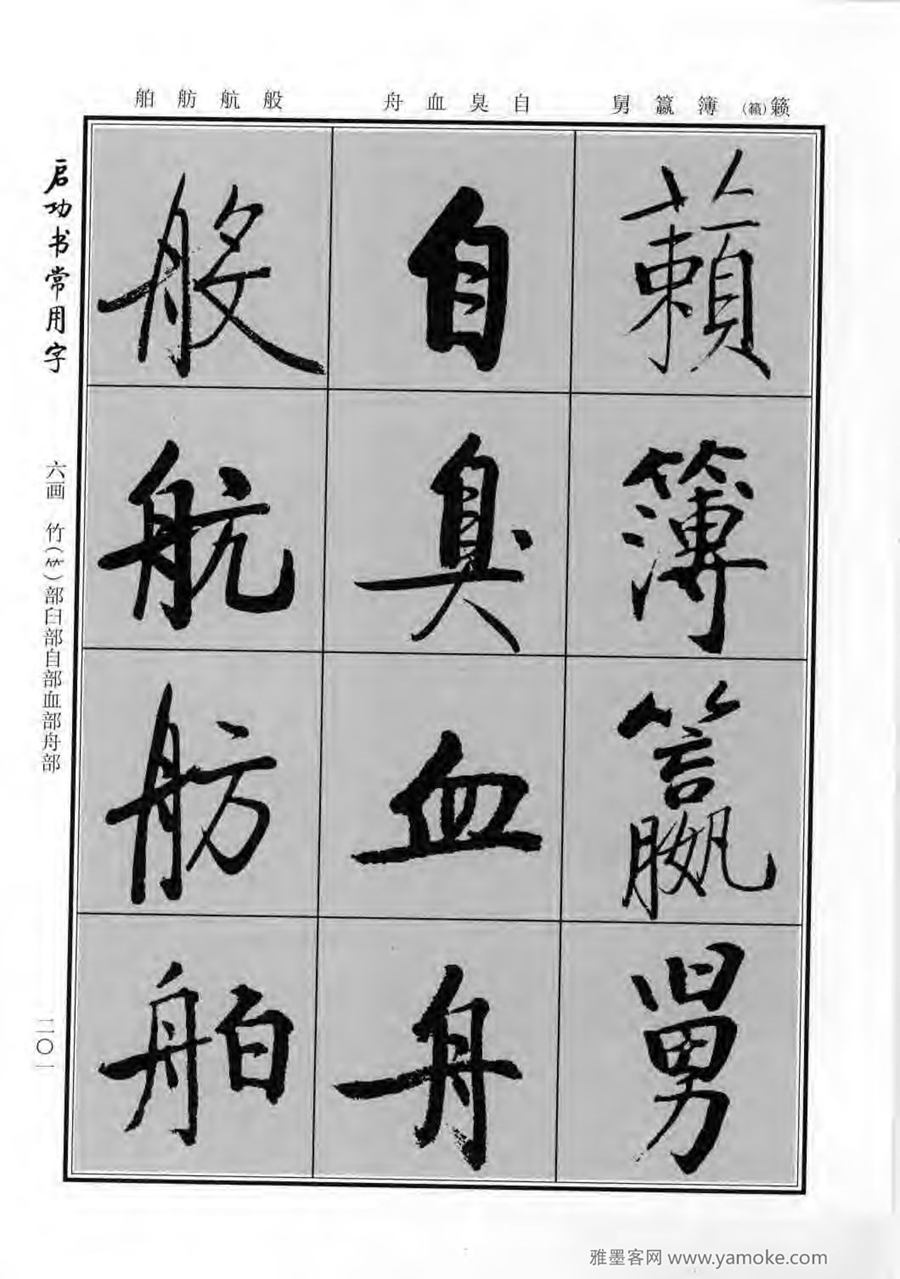 籁(籟)簿籝舅
自臭血舟
般航舫舶
籟
簿
籝
舅
自
臭
血
舟
般
航
舫
舶
启功书常用字
六画 竹(⺮)部臼部自部血部舟部
二〇一
雅墨客网 www.yamoke.com